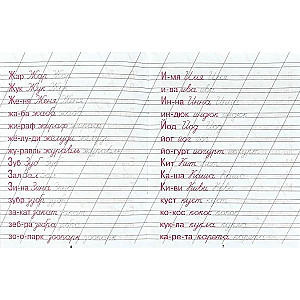 Жар Жар Жар
Жук Жук Жук
Же-ня Женя Женя
жа-ба жаба жаба
жи-раф жираф жираф
жё-лу-ди жёлуди жёлуди
жу-равль журавль журавль
Зуб Зуб Зуб
Зал Зал Зал
Зи-на Зина Зина
зубр зубр зубр
за-кат закат закат
зеб-ра зебра зебра
зо-о-парк зоопарк зоопарк
И-мя Имя Имя
и-ва ива ива
Ин-на Инна Инна
ин-дюк индюк индюк
Йод Йод Йод
йог йог йог
йо-гурт йогурт йогурт
Кит Кит Кит
Ка-ша Каша Каша
Ки-ви Киви Киви
куст куст куст
ко-кос кокос кокос
кук-ла кукла кукла
ка-ре-та карета карета